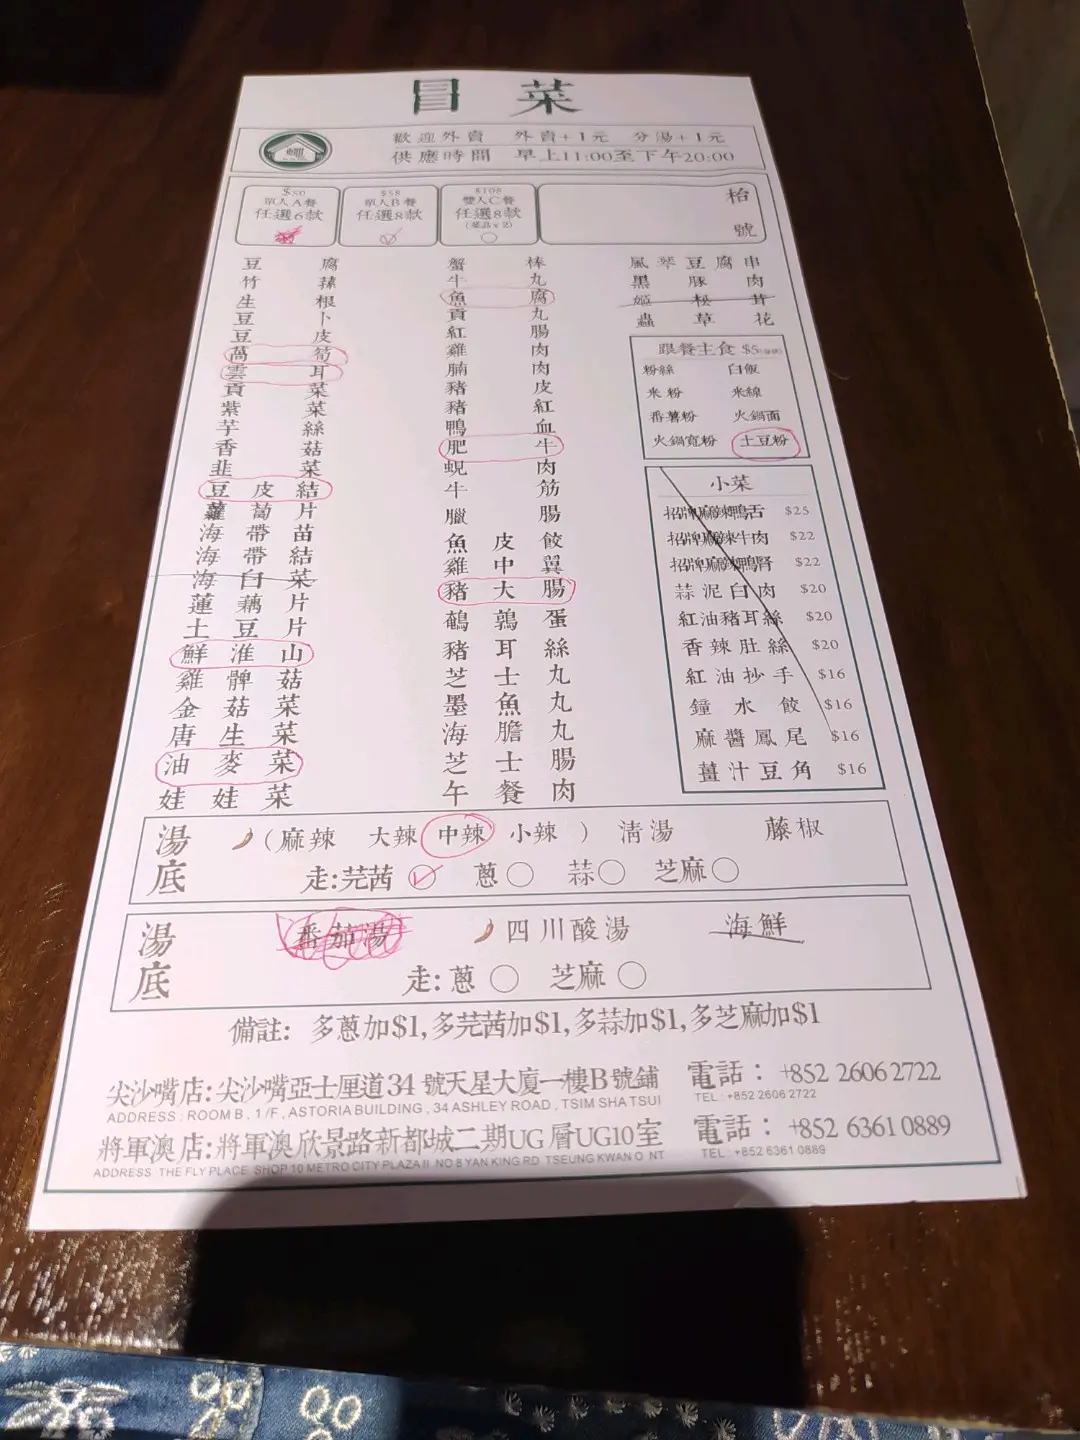 冒菜
歡迎外賣 外賣+1元 分湯+1元
供應時間 早上11:00至下午20:00
$50 單人A餐 任選6款
$58 單人B餐 任選8款
$108 雙人C餐 任選8款 (菜品x2)
枱號
豆腐
竹蓀
生根
豆卜
豆皮
萵筍
雲耳
貢菜
紫菜
芋絲
香菇
韭菜
豆皮結
蘿蔔片
海帶苗
海帶結
海白菜
蓮藕片
土豆片
鮮淮山
雞髀菇
金菇菜
唐生菜
油麥菜
娃娃菜
蟹棒
牛丸
魚腐
貢丸
紅腸
雞肉
腩肉
豬皮
豬紅
鴨血
肥牛
蜆肉
牛筋
臘腸
魚皮餃
雞中翼
豬大腸
鵪鶉蛋
豬耳絲
芝士丸
墨魚丸
海膽丸
芝士腸
午餐肉
風琴豆腐串
黑豚肉
姬松茸
蟲草花
跟餐主食 $5
粉絲 白飯
米粉 米線
番薯粉 火鍋面
火鍋寬粉 土豆粉
小菜
招牌麻辣鴨舌 $25
招牌麻辣牛肉 $22
招牌麻辣鴨腎 $22
蒜泥白肉 $20
紅油豬耳絲 $20
香辣肚絲 $20
紅油抄手 $16
鐘水餃 $16
麻醬鳳尾 $16
薑汁豆角 $16
湯底
(麻辣 大辣 中辣 小辣 ) 清湯 藤椒
走:芫茜 蔥 蒜 芝麻
湯底
番茄湯 四川酸湯 海鮮
走:蔥 芝麻
備註: 多蔥加$1,多芫茜加$1,多蒜加$1,多芝麻加$1
尖沙嘴店:尖沙嘴亞士厘道34 號天星大廈一樓B號鋪 電話： +852 2606 2722
ADDRESS : ROOM B , 1 /F , ASTORIA BUILDING , 34 ASHLEY ROAD , TSIM SHA TSUI TEL : +852 2606 2722
將軍澳店:將軍澳欣景路新都城二期UG層UG10室 電話： +852 6361 0889
ADDRESS THE FLY PLACE SHOP 10 METRO CITY PLAZA II NO 8 YAN KING RD TSEUNG KWAN O NT TEL : +852 6361 0889